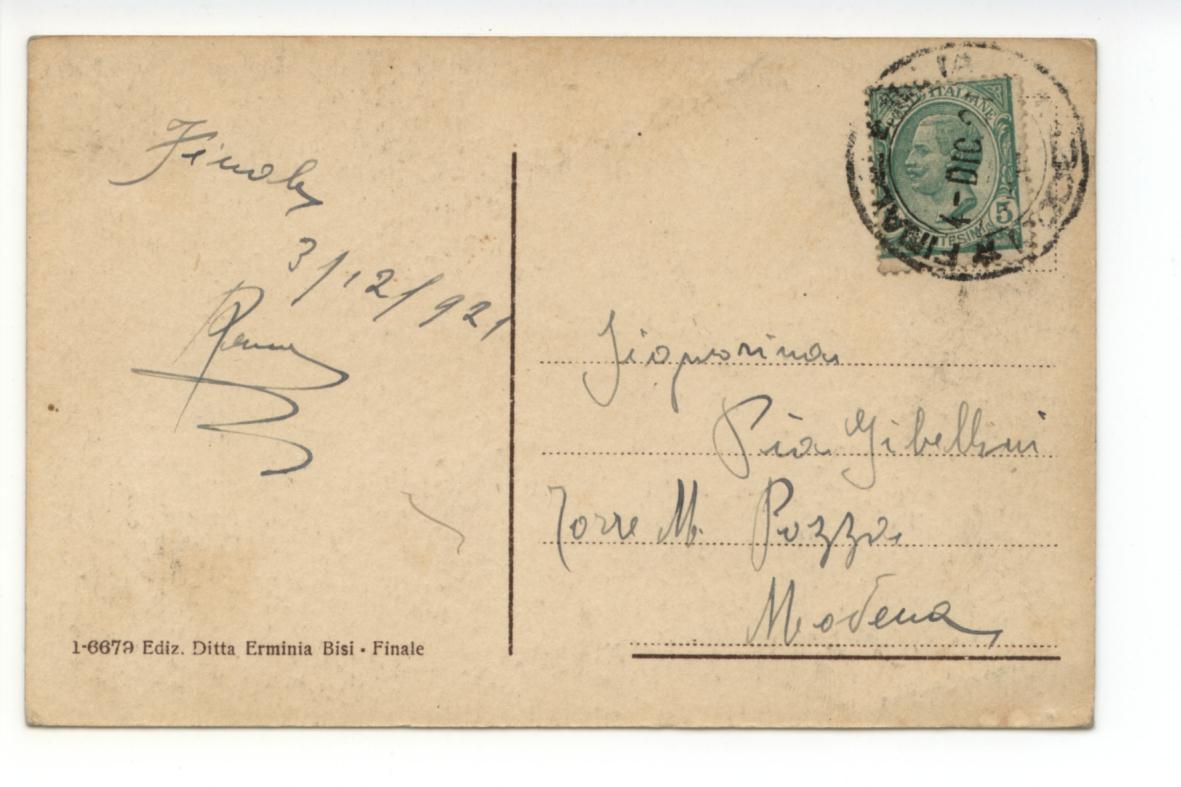 Finale
3/12/921
Signorina
Pia Gibellini
Torre M. Pozza
Modena
1-6679 Ediz. Ditta Erminia Bisi • Finale
POSTE ITALIANE
5
FINALE
4-DIC